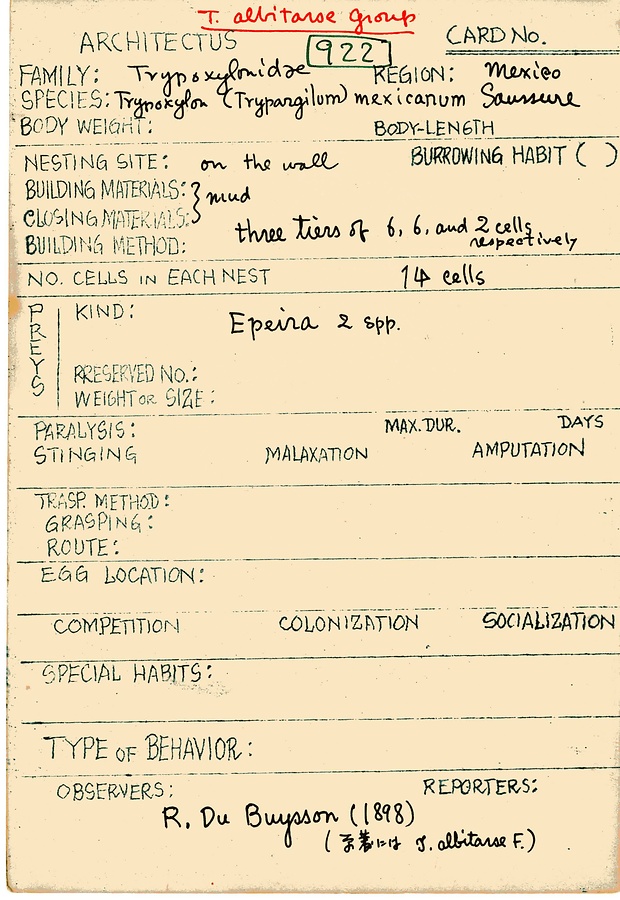 T. albitarse Group
ARCHITECTUS 922 CARD NO.
FAMILY: Trypoxylonidae REGION: Mexico
SPECIES: Trypoxylon (Trypargilum) mexicanum Saussure
BODY WEIGHT: BODY-LENGTH
NESTING SITE: on the wall BURROWING HABIT ( )
BUILDING MATERIALS: } mud
CLOSING MATERIALS:
BUILDING METHOD: three tiers of 6, 6, and 2 cells
respectively
NO. CELLS IN EACH NEST 14 cells
PREYS KIND: Epeira 2 spp.
PRESERVED NO.:
WEIGHT OR SIZE:
PARALYSIS: MAX. DUR. DAYS
STINGING MALAXATION AMPUTATION
TRASP. METHOD:
GRASPING:
ROUTE:
EGG LOCATION:
COMPETITION COLONIZATION SOCIALIZATION
SPECIAL HABITS:
TYPE OF BEHAVIOR:
OBSERVERS: REPORTERS:
R. Du Buysson (1898)
( には T. albitarse F.)